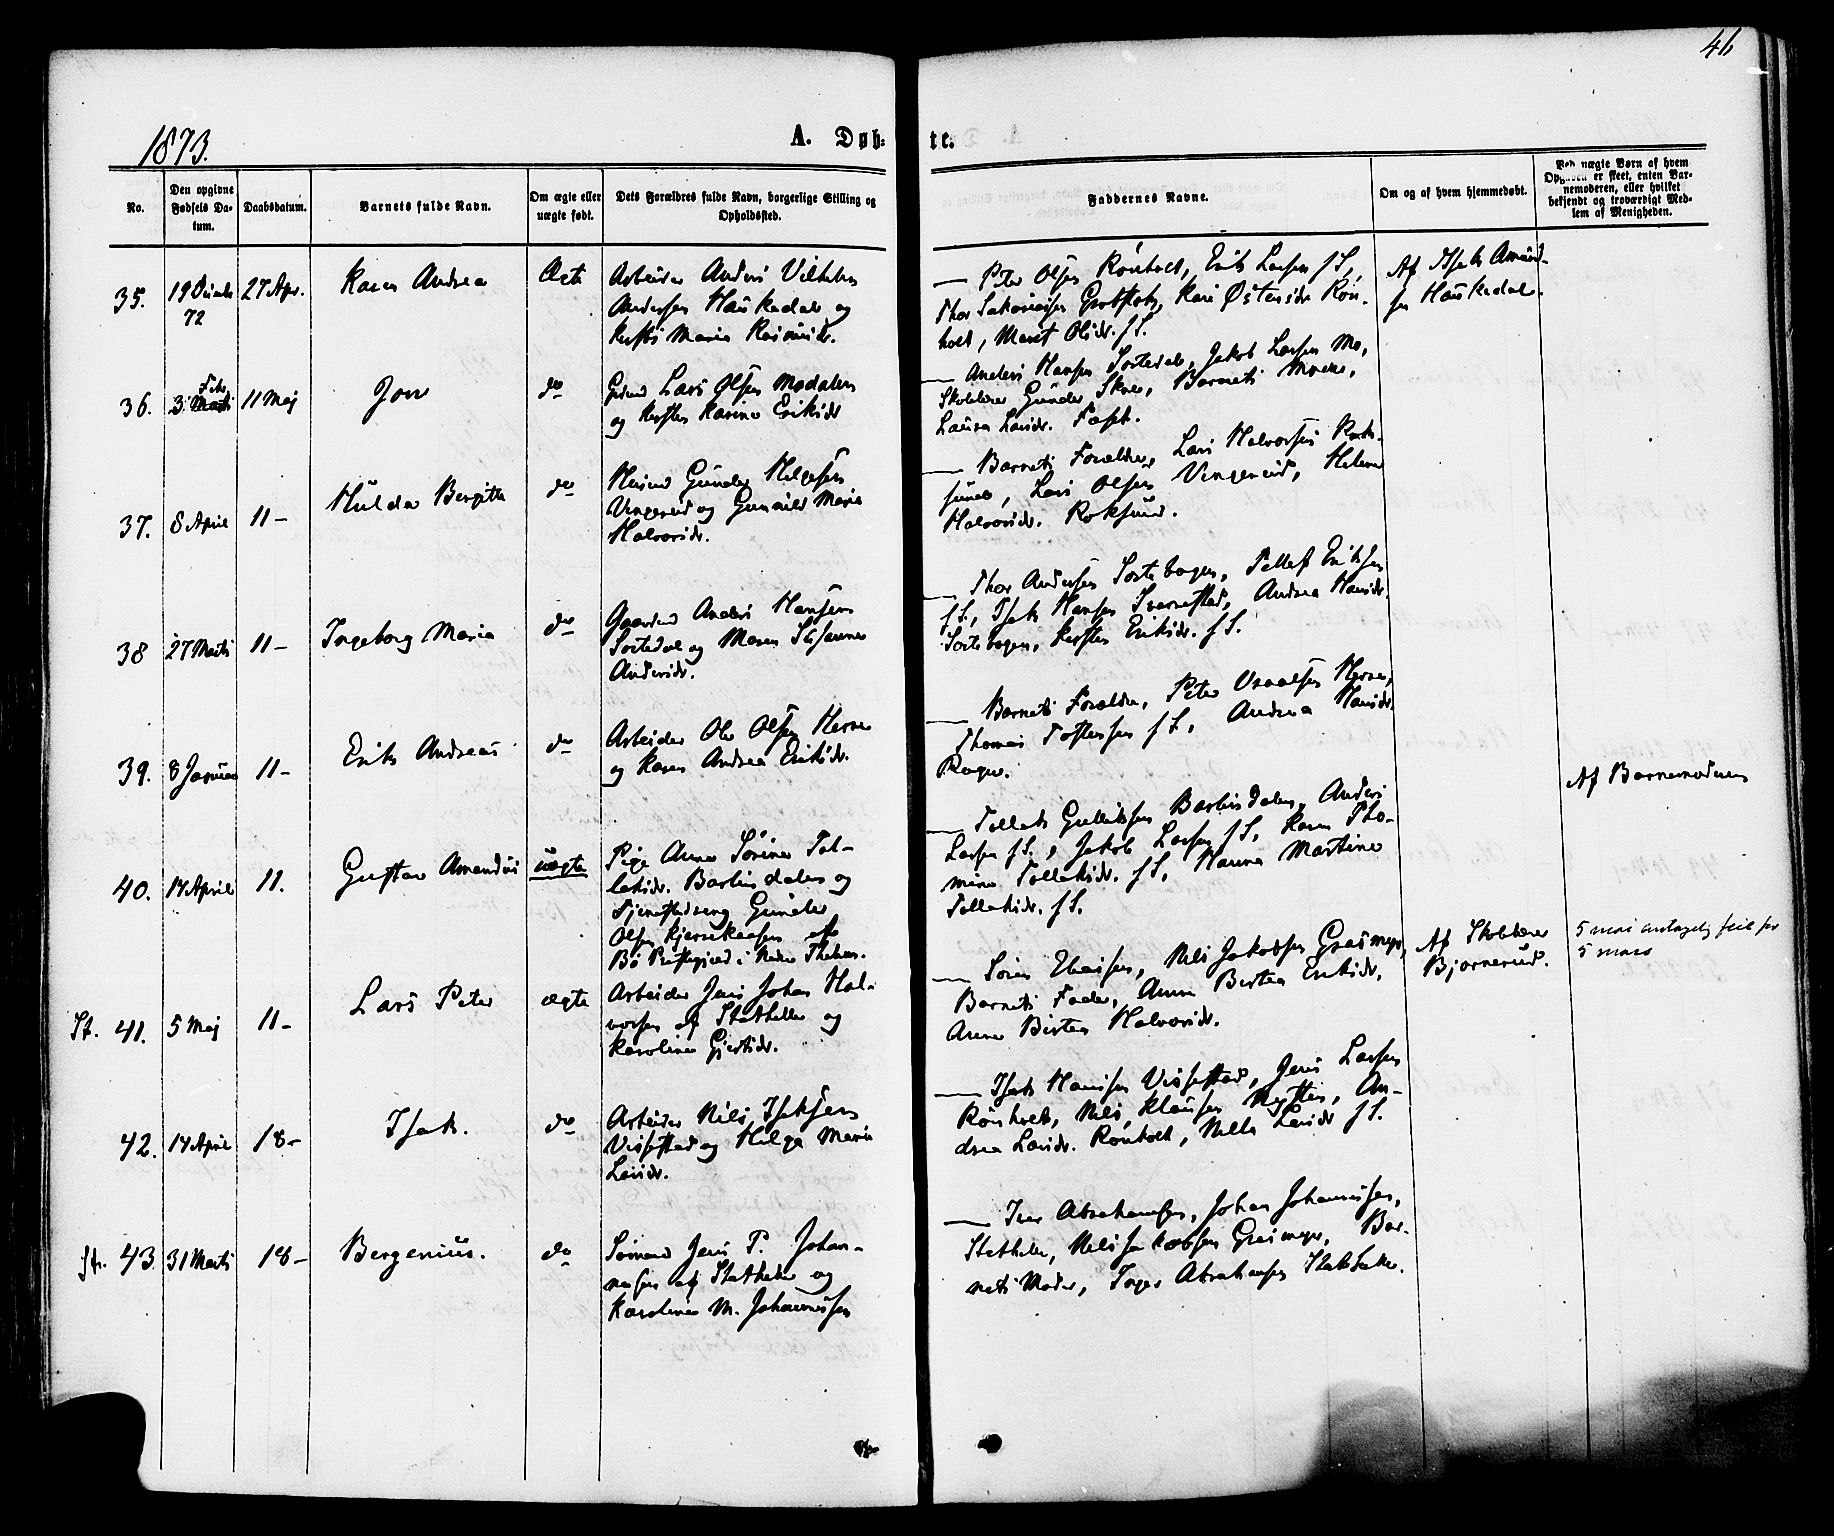 46
1873.
A. Døb-
te.
No.
Den opgivne Fødsels Datum.
Daabsdatum.
Barnets fulde Navn.
Om ægte eller uægte født.
Dets Forældres fulde Navn, borgerlige Stilling og Opholdssted.
Faddernes Navne.
Om og af hvem hjemmedøbt.
Ved uægte Børn af hvem Opgaven er skeet, enten Barnemoderen, eller hvilket bekjendt og troværdigt Medlem af Menigheden.
35.
19
72
27 Apr.
Karen Andrea
Ægte
Arbeider Anders Vilhelm
Andersen Haukedal og
Maria
— Peter Olsen Rönholt, Erik Larsen f S.,
Thor Kari Østensdr. Rön-
holt, Maret Olsdr. f S.
Af Isak Amund-
sen Haukedal.
36.
3 Feb. Marti
11 Maj
Jon
do
Lars Olsen Modalen
og Kirsten Karine Eriksdr
— Anders Hansen Sortedal, Jakob Larsen Mo,
Skolelærer Gunder Skoe, Barnets Moder,
Laura Larsdr.
37.
8 April
11 —
Hulda Bergitte
do
Gunder Helgesen
Vingereid og Gunnild Maria
Halvorsdr.
— Barnets Forældre, Lars Halvorsen Rok-
sund, Lars Olsen Vingereid, Helene
Halvorsdr. Roksund.
38
27 Marti
11 —
Ingeborg Maria
do
Gaardmd Anders Hansen
Sortedal og Maren
Andersdr.
— Thor Andersen Sortebogen, Tellef Eriksen
f S., Isak Hansen Andrea Hansdr.
Sortebogen, Kirsten Eriksdr. f S.
39.
8 Januar
11 —
Erik Andreas
do
Arbeider Ole Olsen Herre
og Karen Andrea Eriksdr.
— Barnets Forældre, Peter Herre,
Thomas Toftensen f S., Andrea Hansdr.
40.
14 April
11.
Gustav Amandus
uægte
Pige Anne Sørine Tol-
leksdr. Barlinddalen og
Gunder
Olsen af
Bø Præstegjeld i Nedre Thelem.
— Tollek Gulliksen Barlindalen, Anders
Larsen f S., Jakob Larsen f S., Karen Tho-
mine Tolleksdr. f S., Hanna Martine
Tolleksdr. f S.
Af Barnemoderen
St. 41.
5 Maj
11 —
Lars Peter
ægte
Arbeider Jens Johan Hal-
vorsen af Stathelle og
Karoline Gjertsdr.
— Søren Eliassen, Nils Jakobsen Grasmyr,
Barnets Fader, Anne Birtea Eriksdr,
Anne Birtea Halvorsdr.
Af Skolelærer
Bjørnerud.
5 mai antagelig feil for
5 mars
42.
14 April
18 —
Isak.
do
Arbeider Nils Isaksen
Vissestad og Helga Maria
Larsdr.
— Isak Hansen Vissestad, Jens Larsen
Rönholt, Nils Klausen An-
drea Larsdr. Rönholt, Larsdr f S.
St. 43.
31 Marti
18 —
Bergenius.
do
Sømand Jens P. Johan-
nesen af Stathelle og
Karoline M. Johannesen
— Iver Abrahamsen, Johan Johannesen,
Stathelle, Nils Jakobsen Grasmyr, Bar-
nets Moder, Inger Abrahamsen Stathelle.